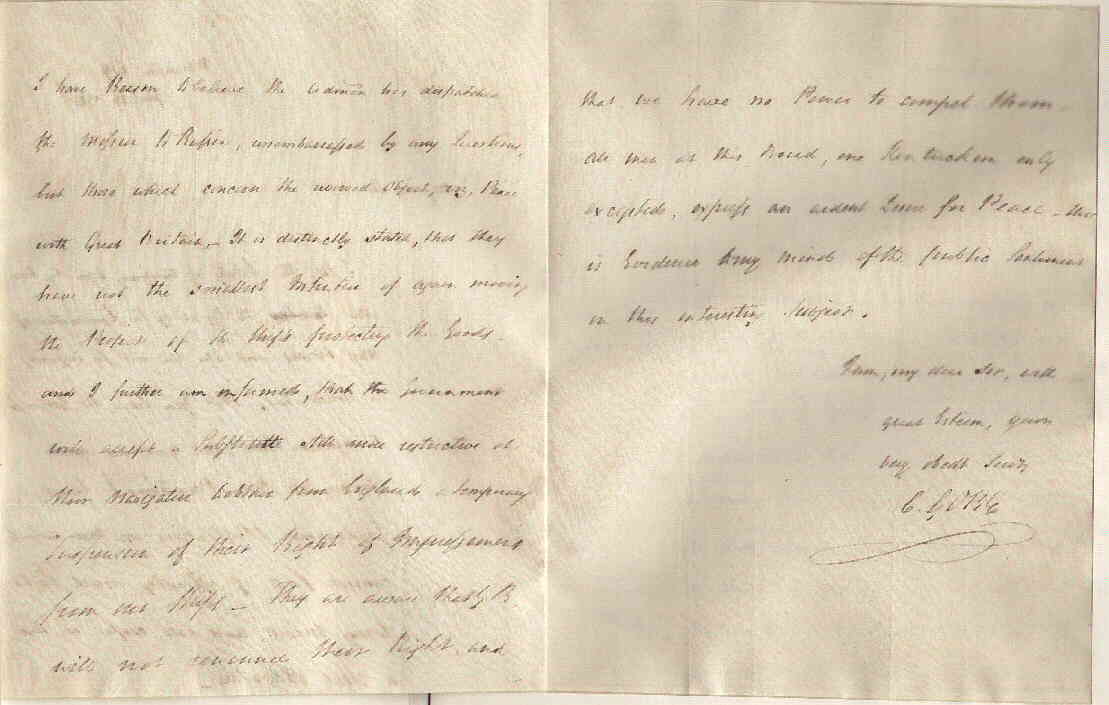 I have Reason to believe the Admn has dispatched
the Mission to Russia, unembarrassed by any Questions,
but those which concern the avowed Object, viz, Peace
with Great Britain, – It is distinctly stated, that they
have not the smallest Intention of again moving
the Project of the Ships protecting the Goods –
and I further am informed, that the Government
will accept a Substitute still more restrictive of
their navigation
from England a temporary
Suspension of their Right of Impressment
from our Ships – They are aware that G B
will not renounce their Right, and
that we have no Power to compel them –
All men at this Board, one Kentuckian only
excepted, express an ardent Desire for Peace – this
is Evidence to my mind of the public Sentiment
on this interesting Subject.
I am, my dear Sir, with
great Esteem, your
very obedt Servt
C. GORE